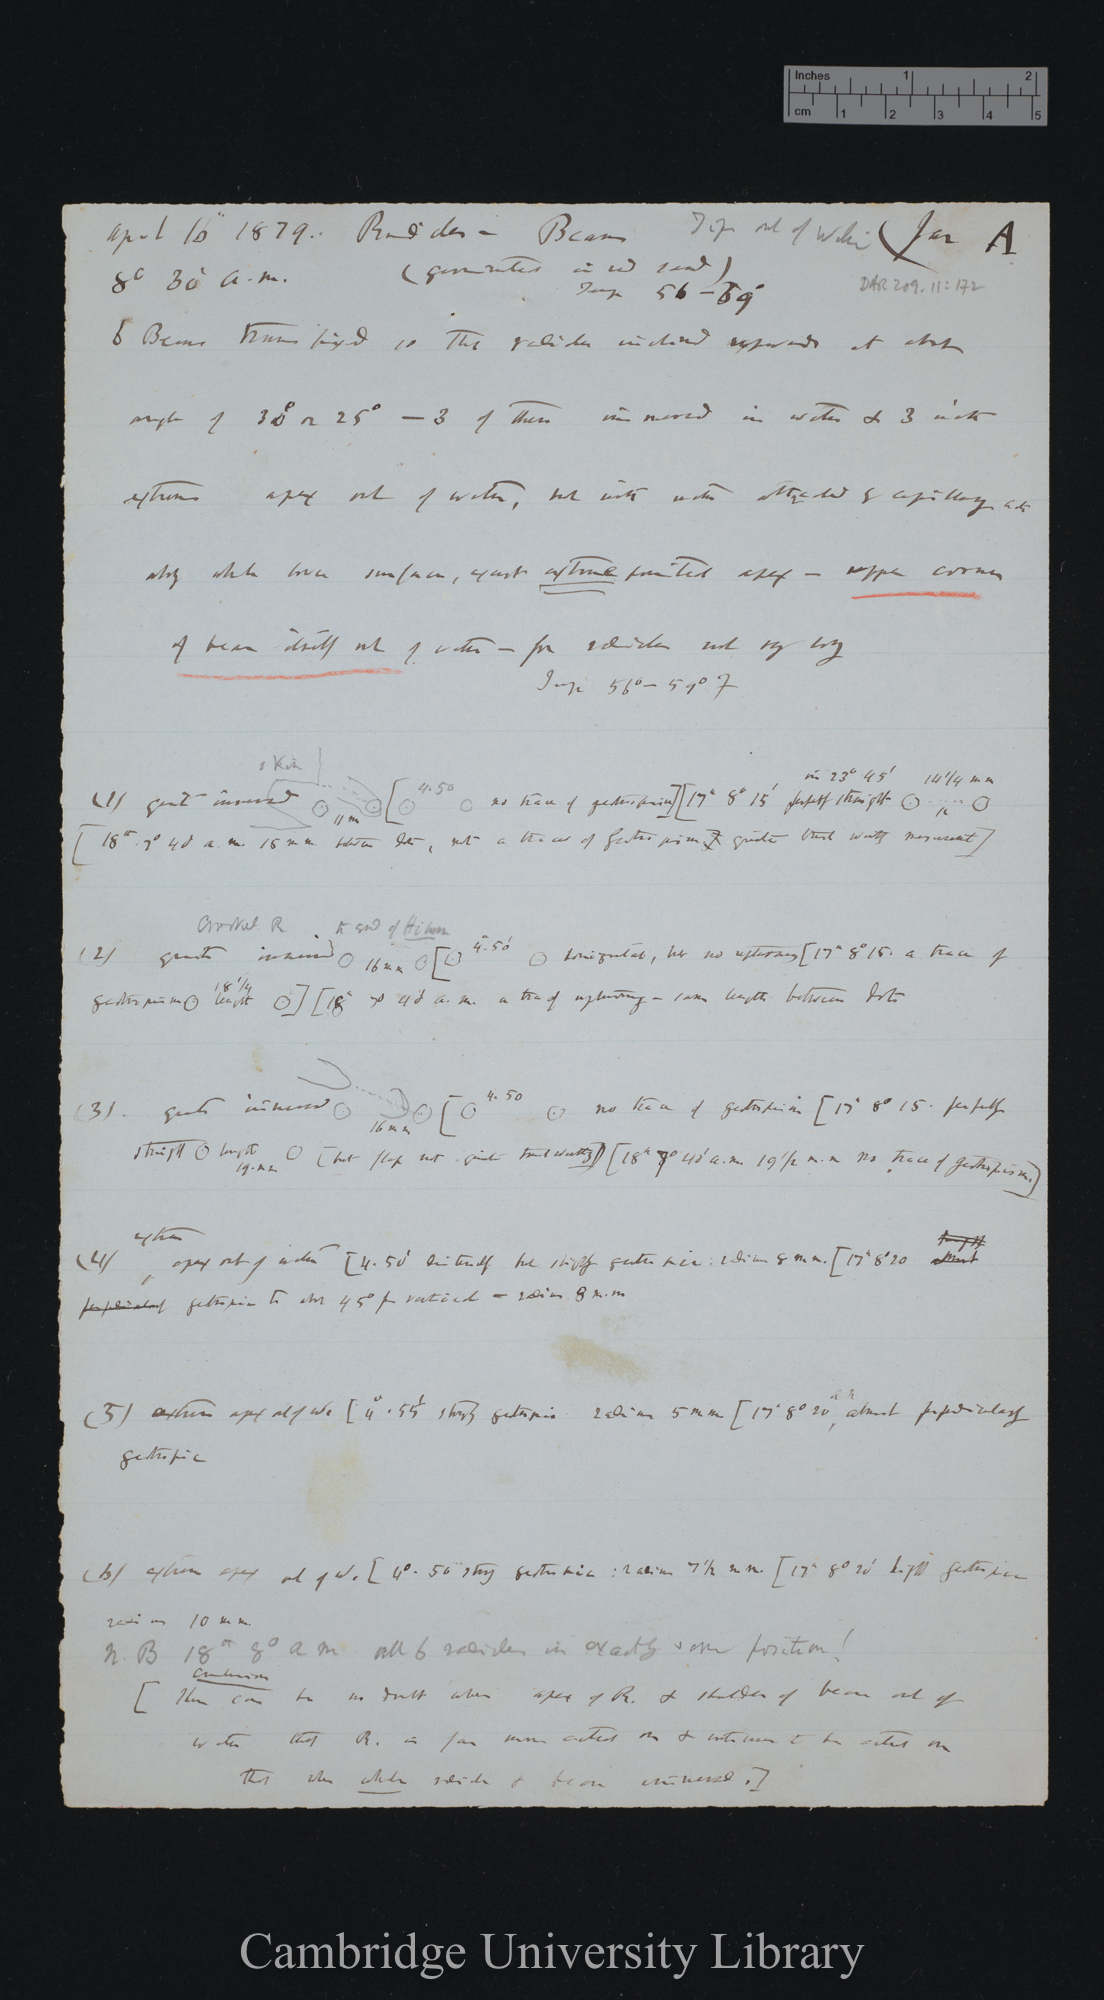 Inches 1 2
cm 1 2 3 4 5
April 16th 1879. Radicles — Beans Tips out of Water (Jar A
8° 30' a.m. (germinated in sand)
Temp 56–59° DAR 209.11:172
6 Beans fixed so that radicles inclined upwards at about
angle of 30° or 25° — 3 of them immersed in water & 3 with
extreme apex out of water, but with water attracted by capillary
along whole lower surface, except extreme pointed apex — upper corner
of bean itself out of water — for radicles not very long
Temp 56°–59° F
in 23° 45' 14 1/4 mm
(1) quite immersed 11 m [4.50 no trace of geotropism] [17th 8° 15' perfectly straight
[18th 7° 40' a.m. 15 mm between dots, not a trace of Geotropism quite trust worthy measurement]
Crooked R. to end of Hilum
(2) quite immersed 16 mm [4.50' horizontal, but no upturning [17th 8° 15. a trace of
geotropism length 18 1/4] [18th 40' a.m. a trace of upturning — same length between dots
(3). quite immersed 16 mm [4.50 no trace of geotropism [17th 8° 15. perfectly
straight length 19. mm (but flap not quite trustworthy)] [18th 7° 40' a.m. 19 1/2 m.m no trace of geotropism.]
(4) extreme apex out of water [4.50' distinctly but slightly geotropic: radicle 8 m.m. [17th 8° 20 length almost
perpendicularly geotropic to about 45° from vertical — radicle 8 m.m
(5) extreme apex out of W. [4° 55' strongly geotropic radicle 5 mm [17th 8° 20', almost perpendicularly
geotropic
(6) extreme apex out of W. [4°. 50' strongly geotropic: radicle 7 1/2 m.m. [17th 8° 20' highly geotropic
radicle 10 m m.
N.B 18th 8° a m all 6 radicles in exactly same position!
Conclusion
[There can be no doubt when apex of R. & shoulder of bean out of
water that R. is far more acted on & continues to be acted on
than when whole radicle & bean immersed.]
Cambridge University Library